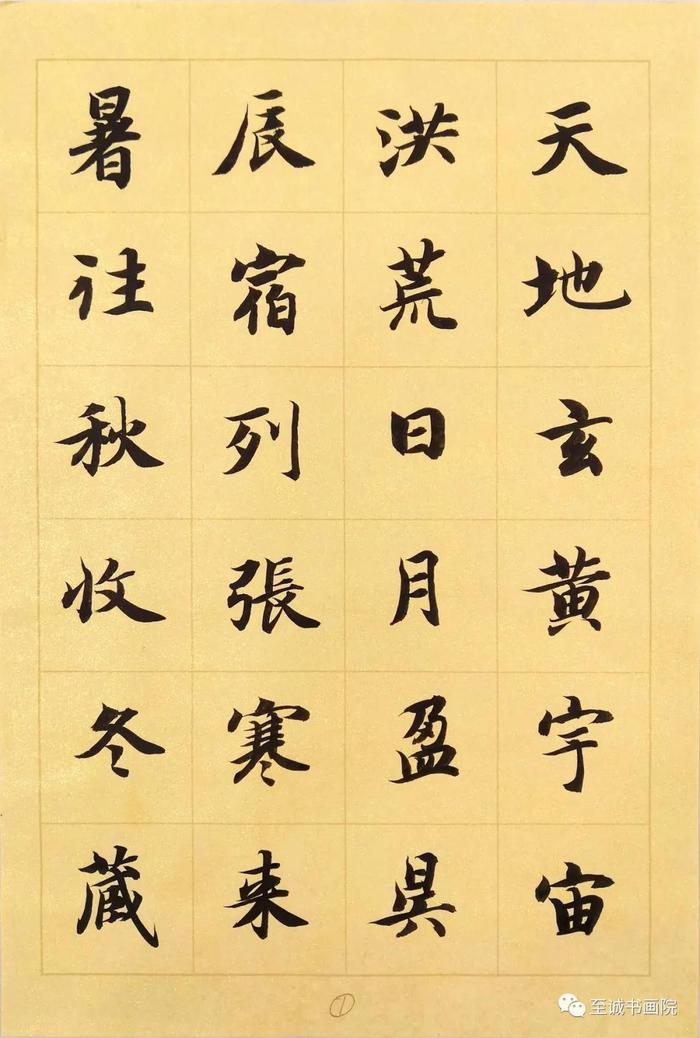 天地玄黄宇宙
洪荒日月盈昃
辰宿列張寒来
暑往秋收冬蔵
①
至诚书画院